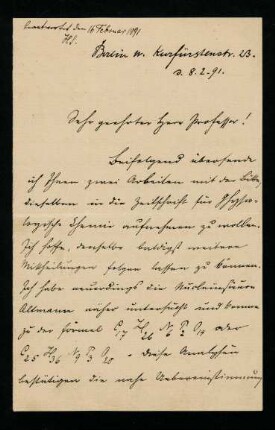 Beantwortet den 14 Februar 1891
H.S.
Berlin W. Kurfürstenstr. 23.
d. 8.2.91.
Sehr geehrter Herr Professor!
Beifolgend übersende
ich Ihnen zwei Arbeiten mit der Bitte,
dieselben in die Zeitschrift für Physio-
logische Chemie aufnehmen zu wollen.
Ich hoffe, denselben baldigst weitere
Mittheilungen folgen lassen zu können.
Ich habe neuerdings die Nucleinsäure
Altmann näher untersucht und komme
zu der Formel C17 H26 N6 P2 O14 oder
C25 H36 N9 P3 O20 - Diese Analysen
bestätigen die nahe Uebereinstimmung